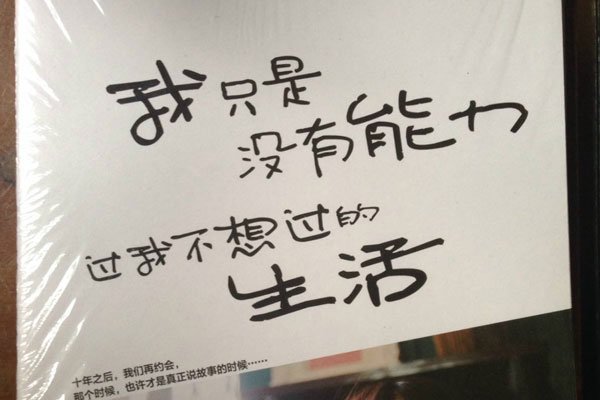 我只是
没有能力
过我不想过的
生活
十年之后，我们再约会，
那个时候，也许才是真正说故事的时候……